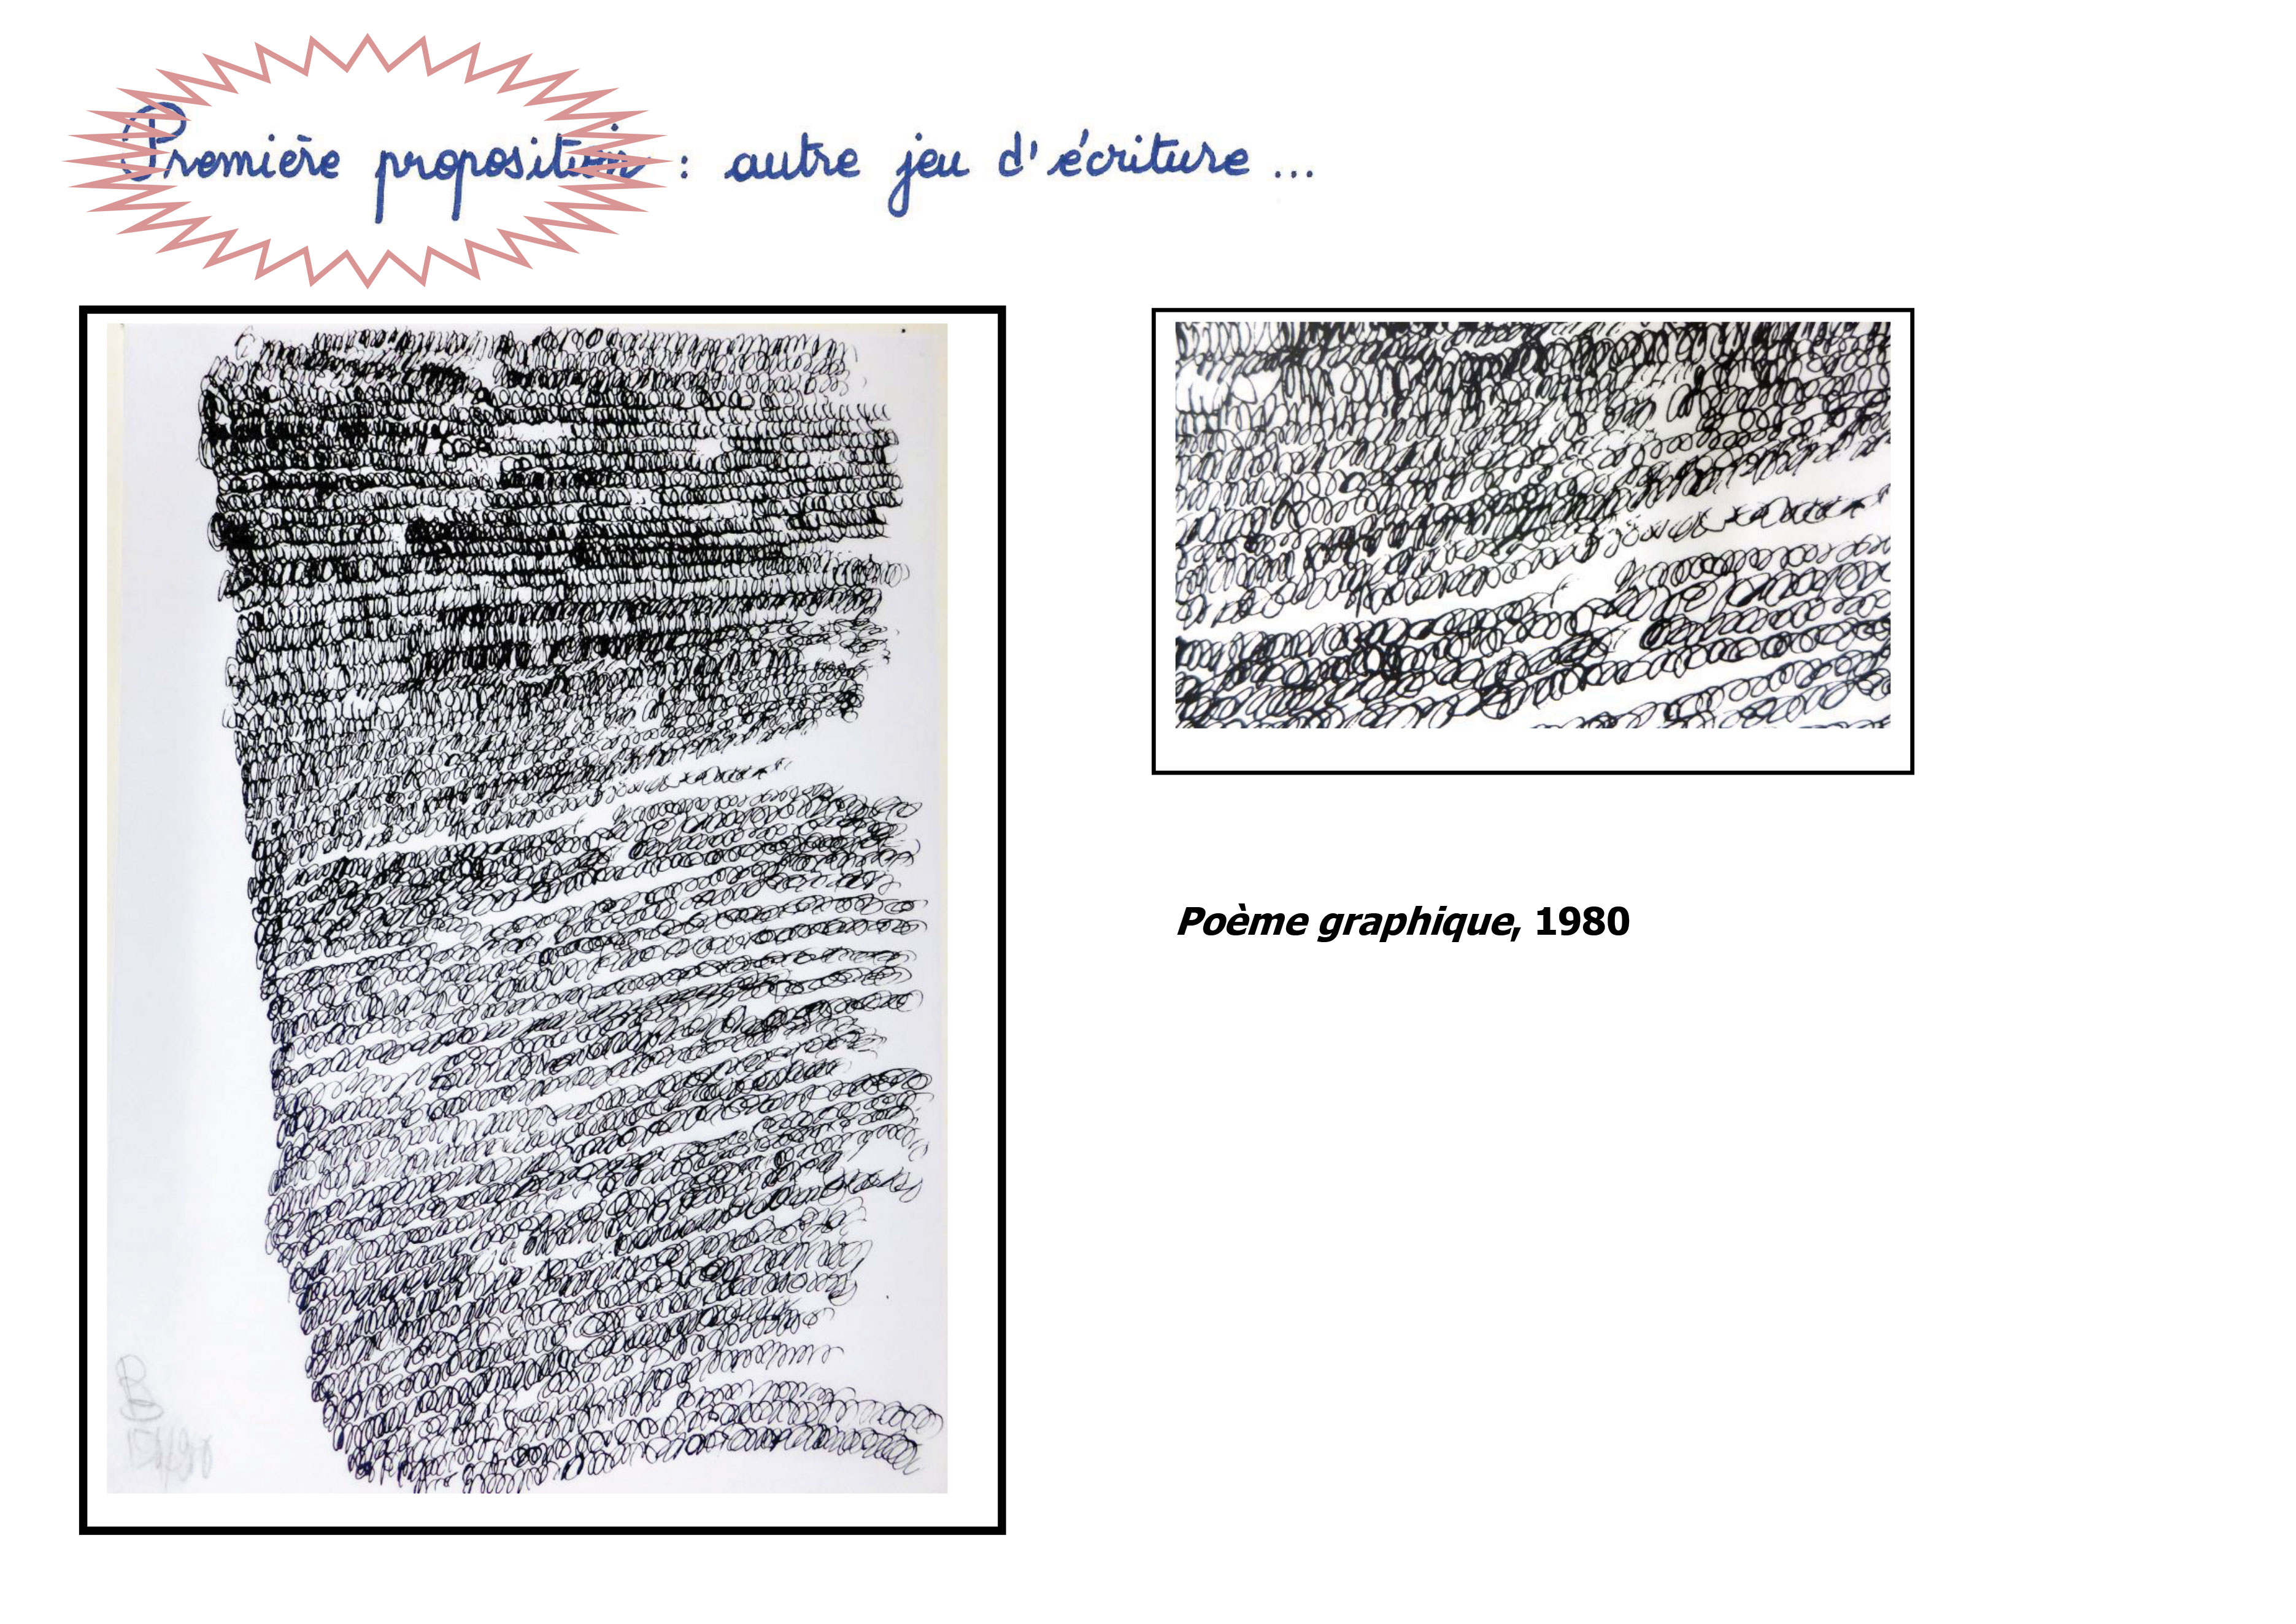 Première proposition : autre jeu d'écriture ...
Poème graphique, 1980